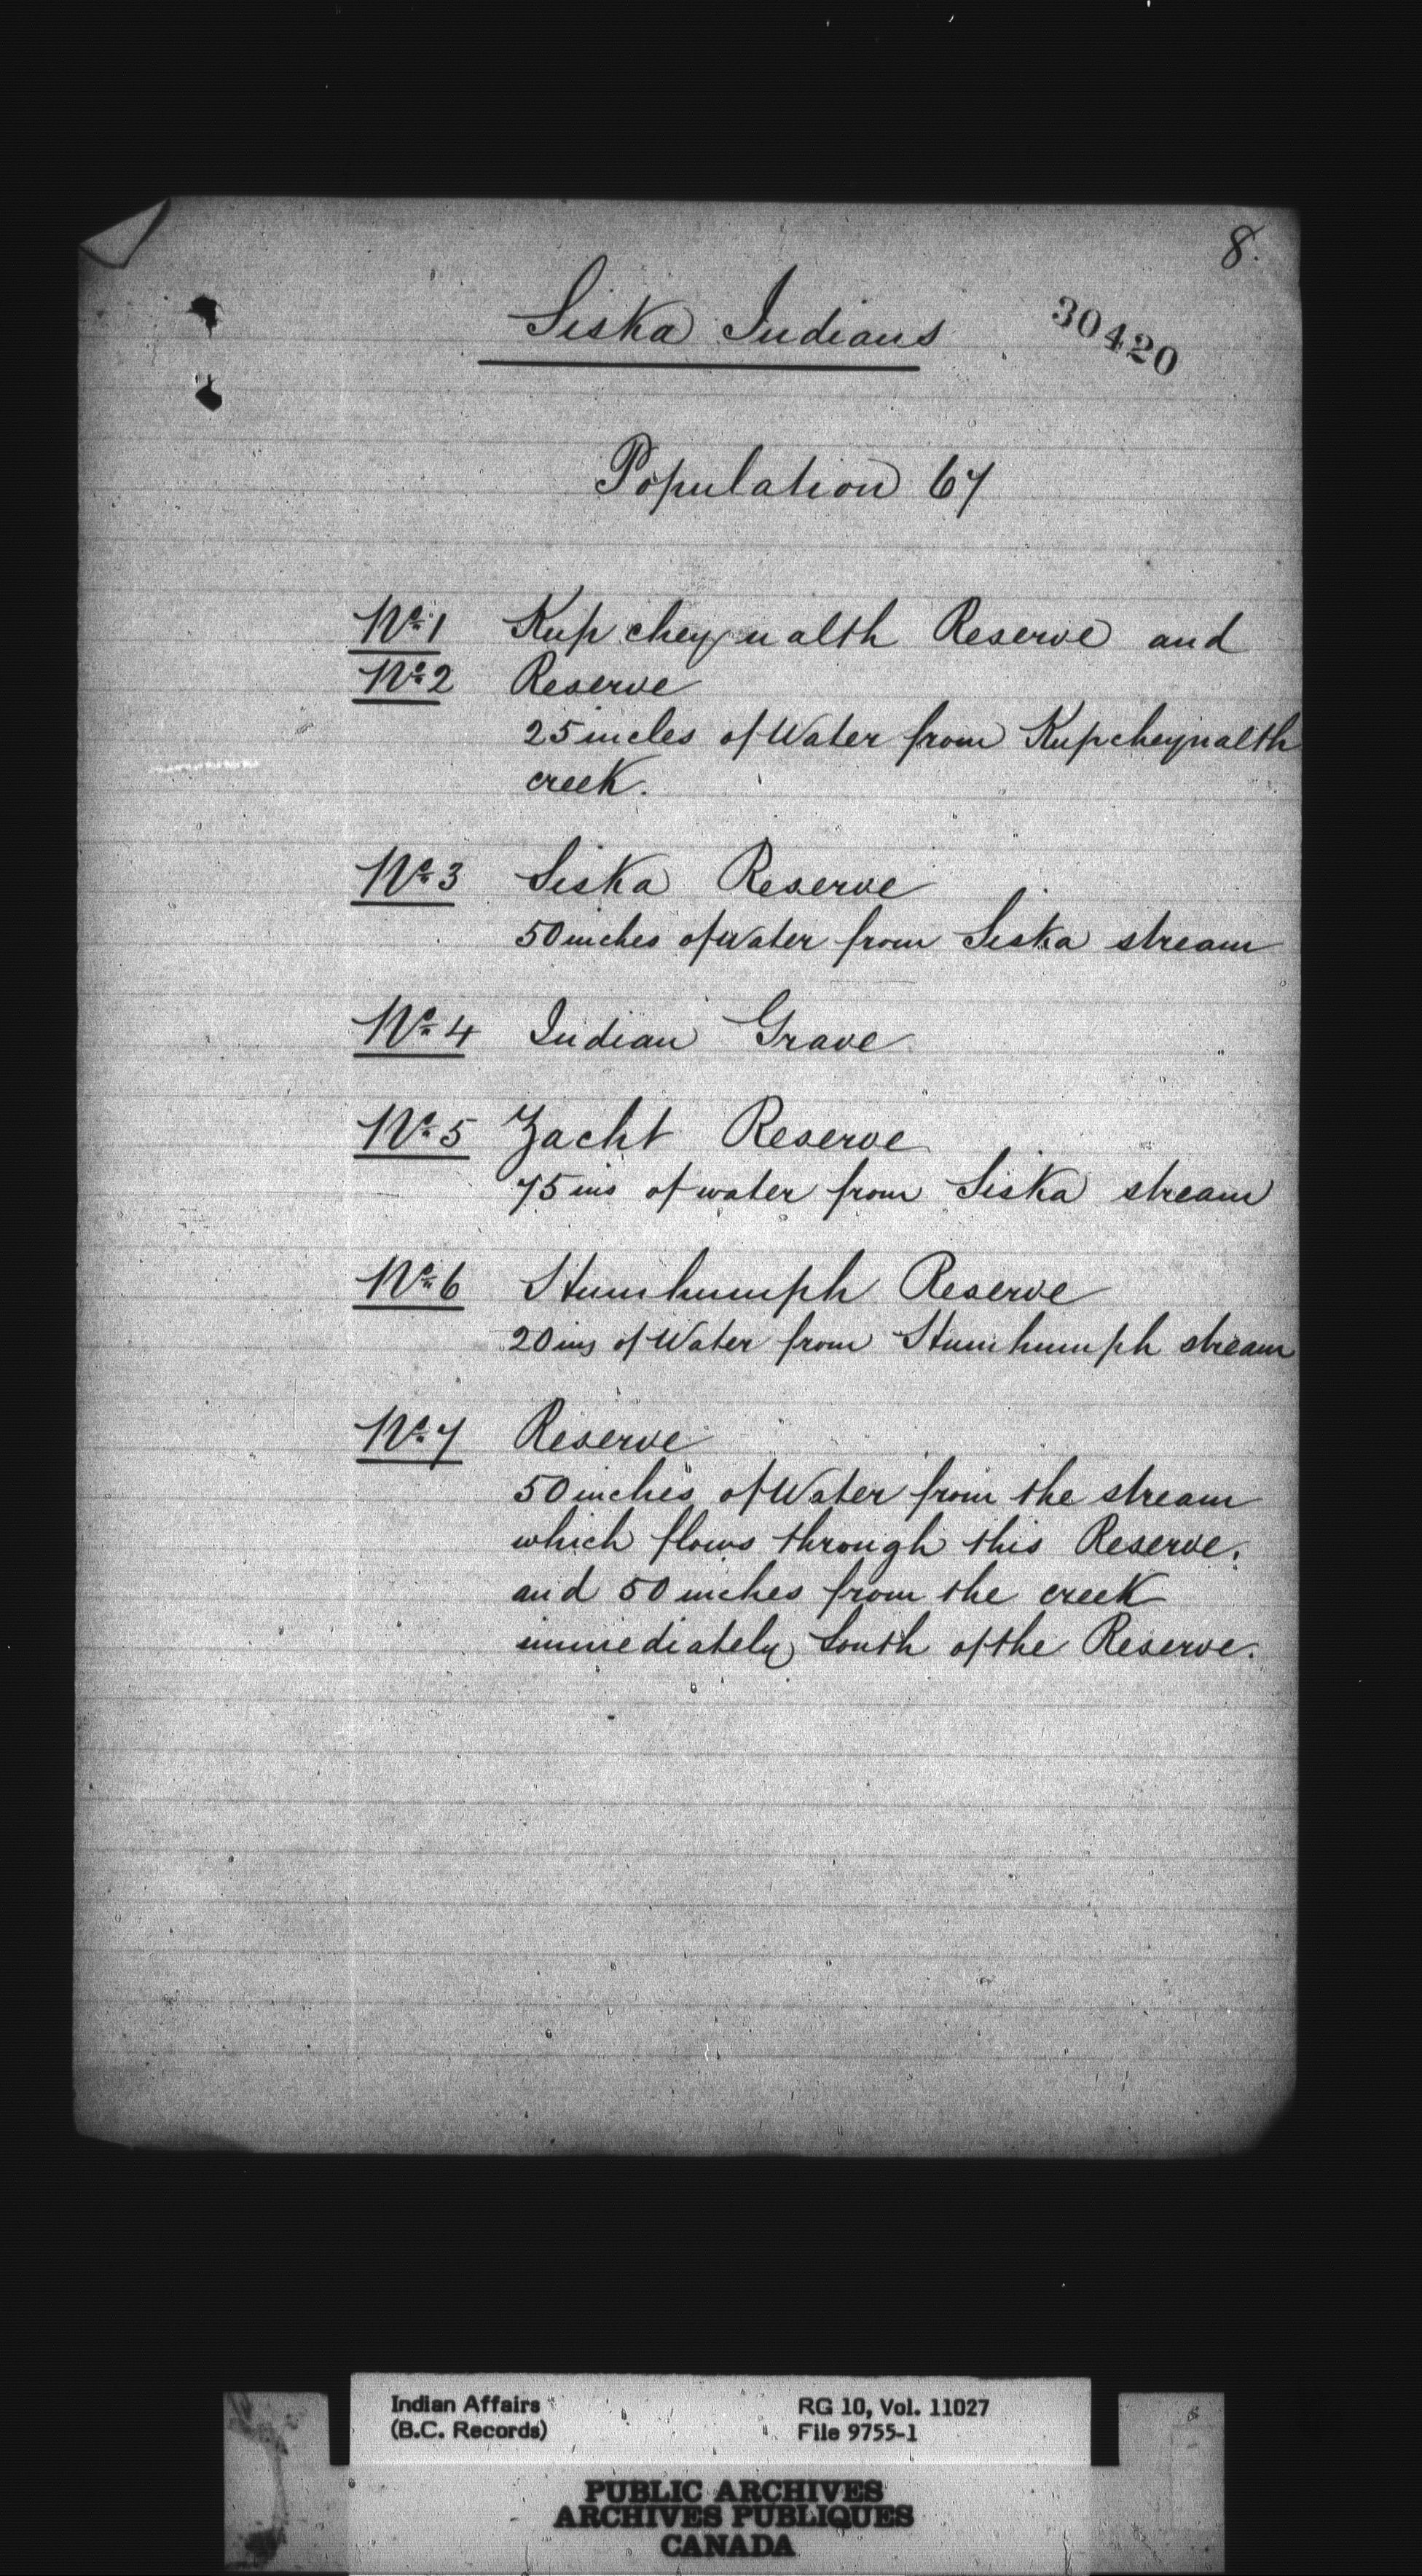 8.
30420
Siska Indians
Population 67
No. 1 Kupcheynalth Reserve and
No. 2 Reserve
25 inches of Water from Kupcheynalth
creek.
No. 3 Siska Reserve
50 inches of Water from Siska stream
No. 4 Indian Grave
No. 5 Zacht Reserve
75 ins of water from Siska stream
No. 6 Humhumph Reserve
20 ins of Water from Humhumph stream
No. 7 Reserve
50 inches of Water from the stream
which flows through this Reserve.
and 50 inches from the creek
immediately South of the Reserve.
Indian Affairs RG 10, Vol. 11027
(B.C. Records) File 9755-1
PUBLIC ARCHIVES
ARCHIVES PUBLIQUES
CANADA